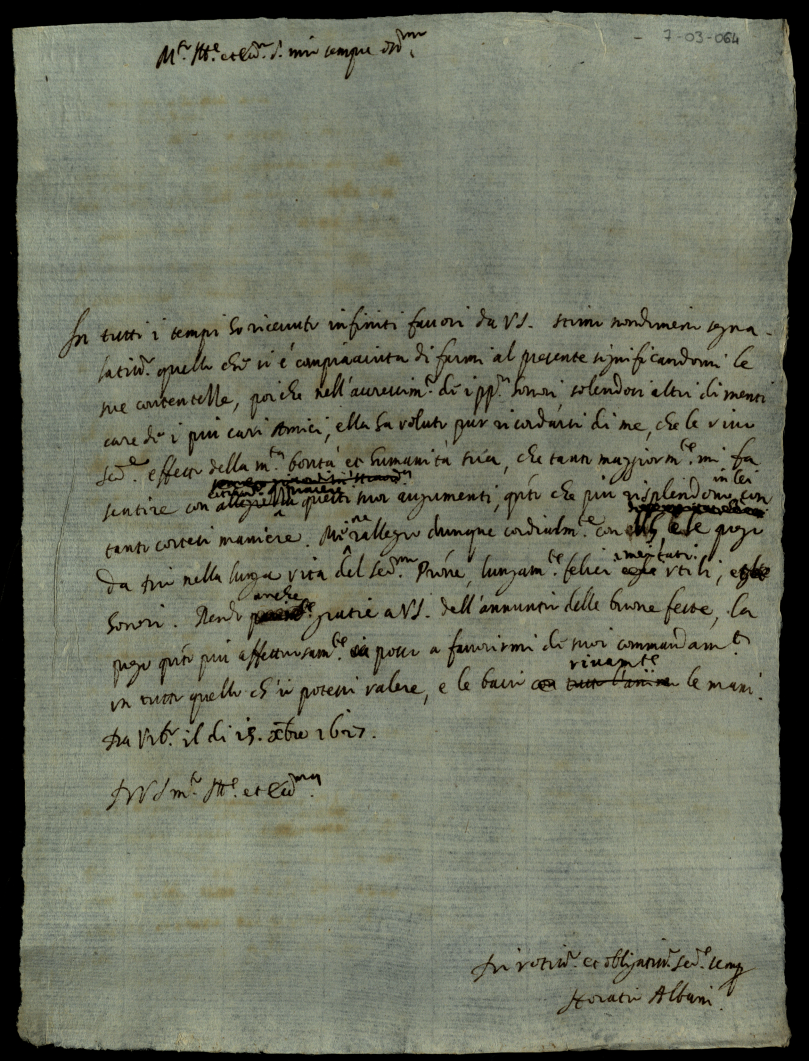 7-03-064
M.to Ill.e et Ecc.mo S.r mio sempre oss.mo
In tutti i tempi ho ricevuto infiniti favori da VS. stimo nondimeno segna-
latiss.o quello ch'ella si è compiaciuta di farmi al presente significandomi le
sue contentezze, poiche nell'accrescim.to di honori solendosi altri dimenti
care de i più cari Amici, ella ha voluto pur ricordarsi di me, che le vivo
ser.re effetto della m.ta bontà et humanità sua, che tanto maggiorm.te mi fa
sentire con questi suoi augumenti, q.to che più risplendono in lei con
tanto cortesi maniere. Mi rallegro dunque cordialm.te con e le prego
da Dio nella lunga vita del ser.mo Pn̄pe, lungam.te felici utili, e
honori. Rendo anche gratie a VS. dell'annuntio delle buone feste, la
prego q.to più affettuosam.te posso a favorirmi di suoi commandam.ti
in tutto quello ch'io potessi valere, e le bacio vivam.te le mani.
Da Urb.o il di 15. Xbre 1627.
Di VS m.to Ill.e et Ecc.ma
Divotiss.o et obligatiss.o Ser.re sempre
Horatio Albani